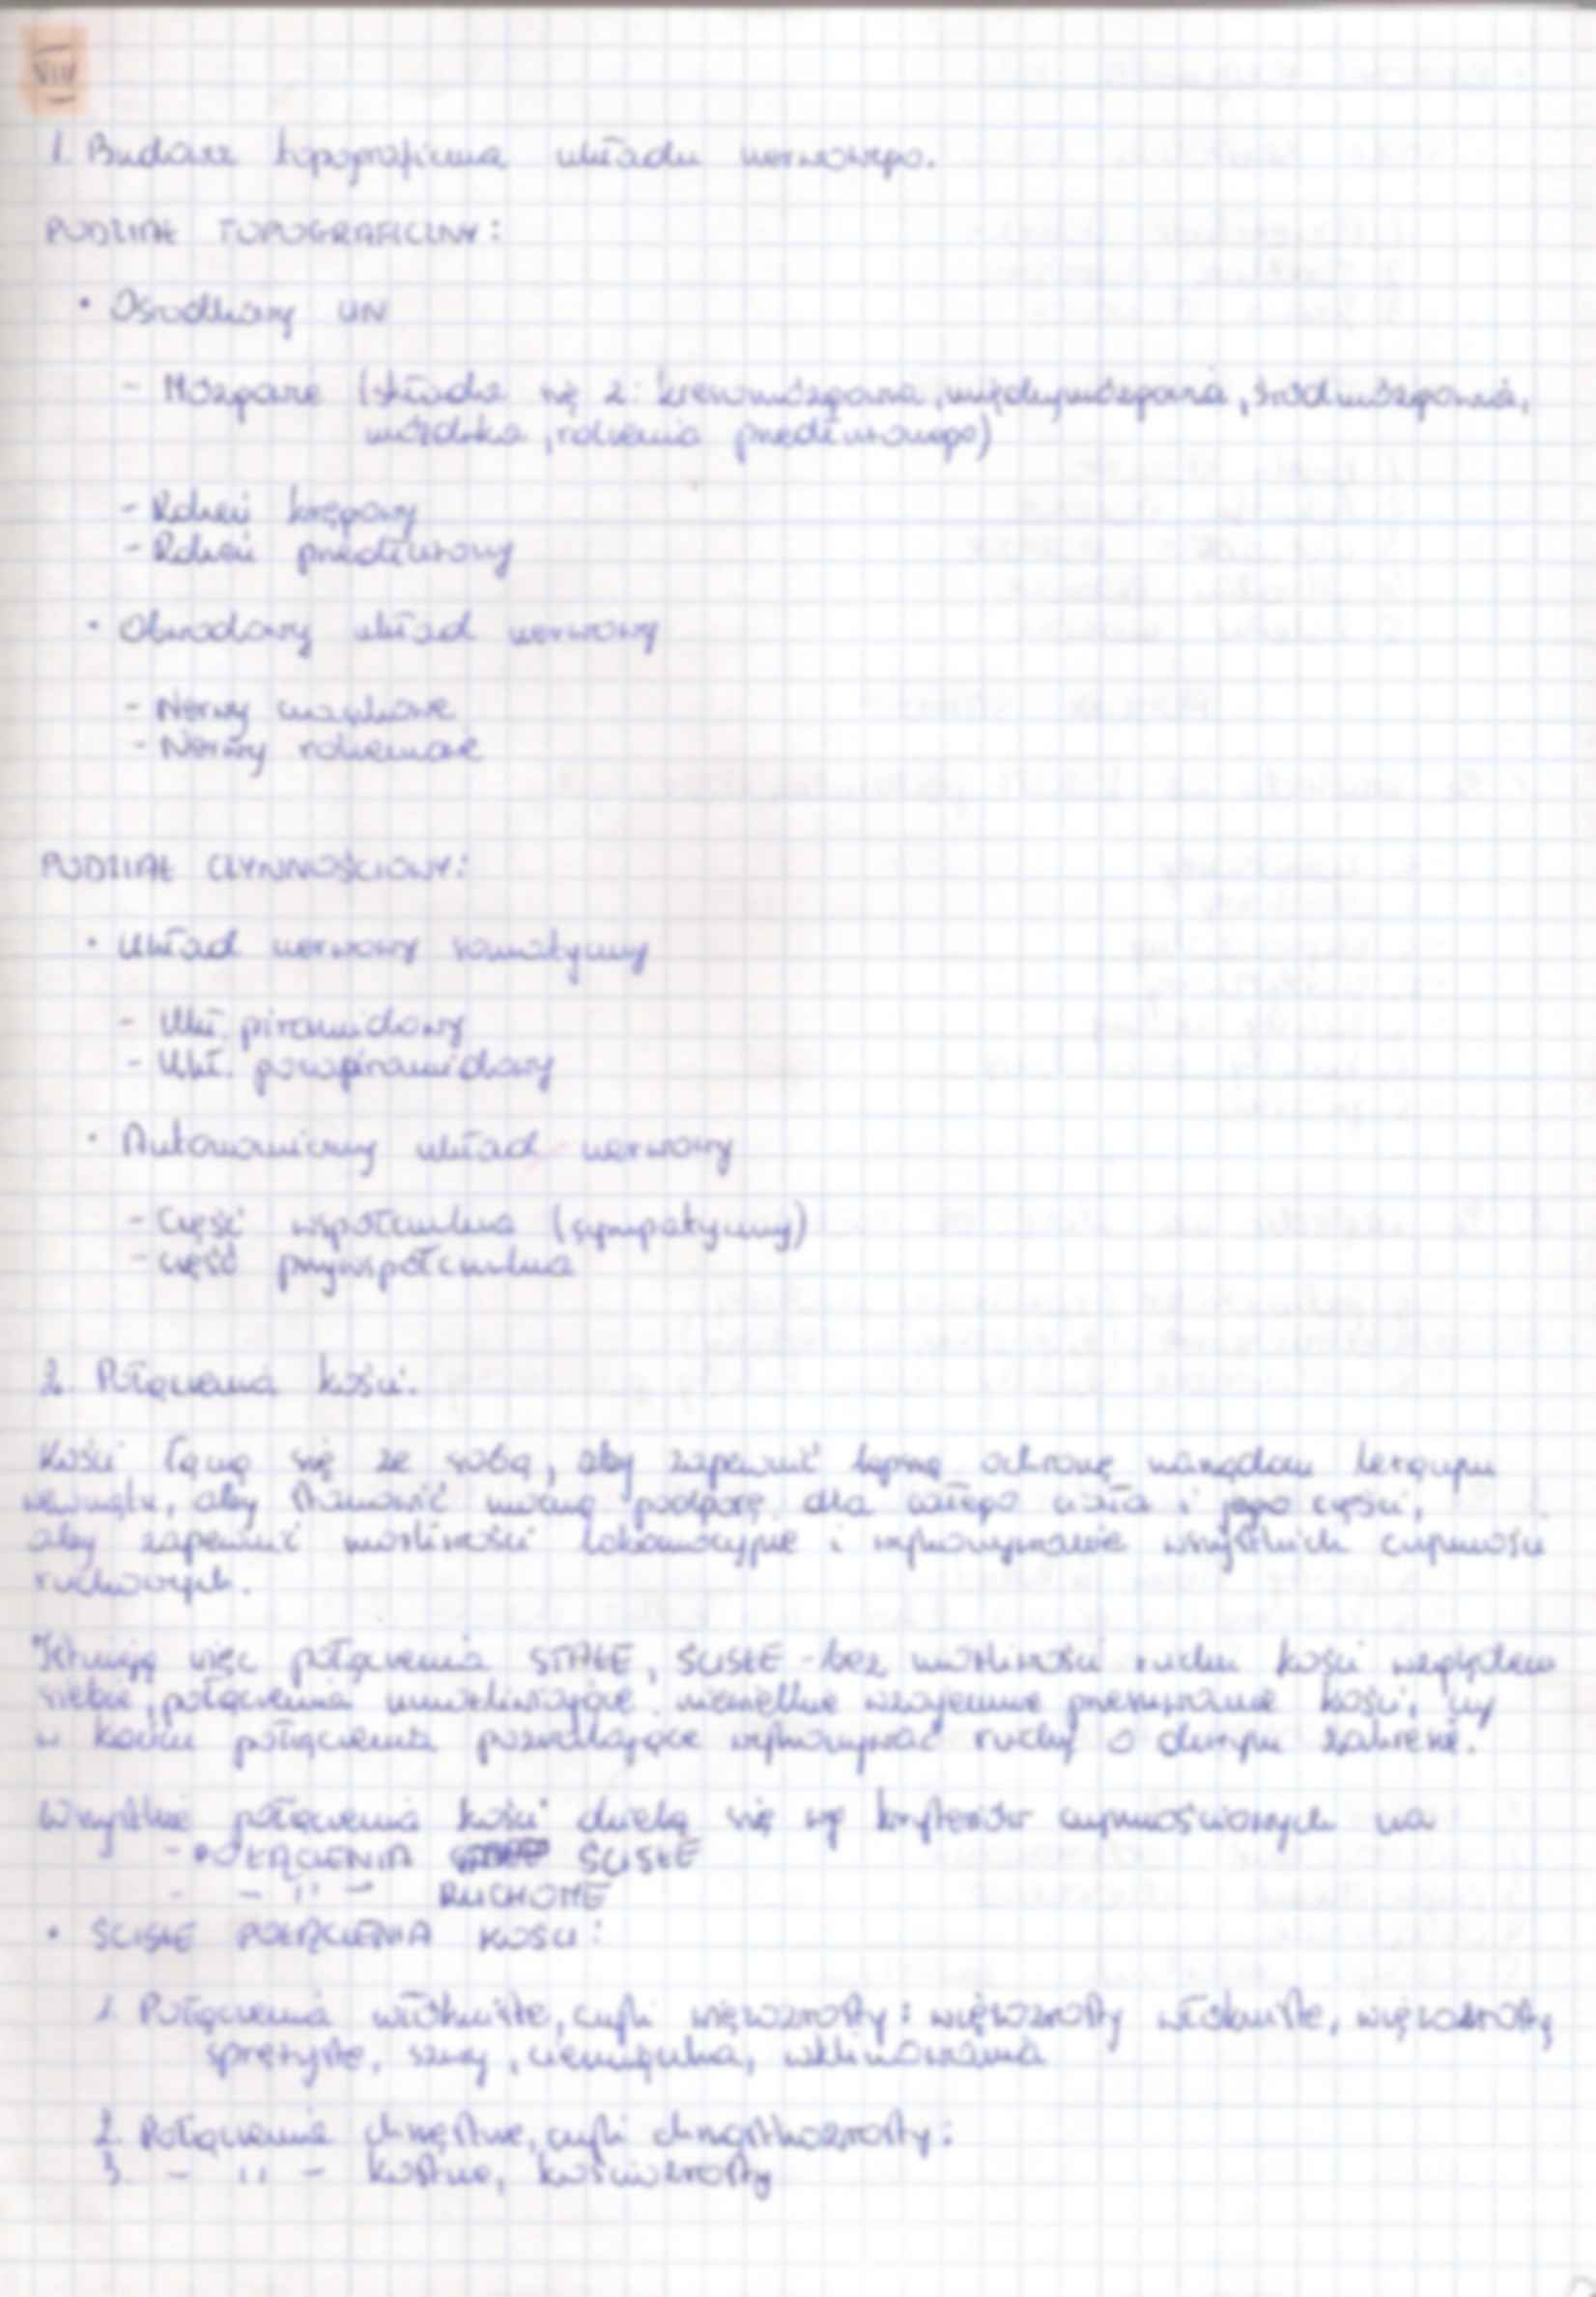 VIII
1. Budowa topograficzna układu nerwowego.
PODZIAŁ TOPOGRAFICZNY:
• Ośrodkowy UN
- Mózgowie (składa się z: kresomózgowia, międzymózgowia, śródmózgowia,
móżdżku, rdzenia przedłużonego)
- Rdzeń kręgowy
- Rdzeń przedłużony
• Obwodowy układ nerwowy
- Nerwy czaszkowe
- Nerwy rdzeniowe
PODZIAŁ CZYNNOŚCIOWY:
• Układ nerwowy somatyczny
- Ukł. piramidowy
- Ukł. pozapiramidowy
• Autonomiczny układ nerwowy
- Część współczulna (sympatyczny)
- część przywspółczulna
2. Połączenia kości.
Kości łączą się ze sobą, aby zapewnić ochronę narządom leżącym
wewnątrz, aby stanowić mocną podporę dla całego ciała i jego części,
aby zapewnić możliwości lokomocyjne i wykonywanie wszystkich czynności
ruchowych.
Istnieją więc połączenia STAŁE, ŚCISŁE - bez możliwości ruchu kości względem
siebie, połączenia umożliwiające niewielkie wzajemne przesuwanie kości, czy
w końcu połączenia pozwalające wykonywać ruchy o dużym zakresie.
Wszystkie połączenia kości dzielą się wg kryteriów czynnościowych na
- POŁĄCZENIA ŚCISŁE
- - " - RUCHOME
• ŚCISŁE POŁĄCZENIA KOŚCI:
1. Połączenia włókniste, czyli więzozrosty: więzozrosty włókniste, więzozrosty
sprężyste, szwy, ciemiączka, wklinowania
2. Połączenia chrzęstne, czyli chrząstkozrosty:
3. - " - kostne, kościozrosty